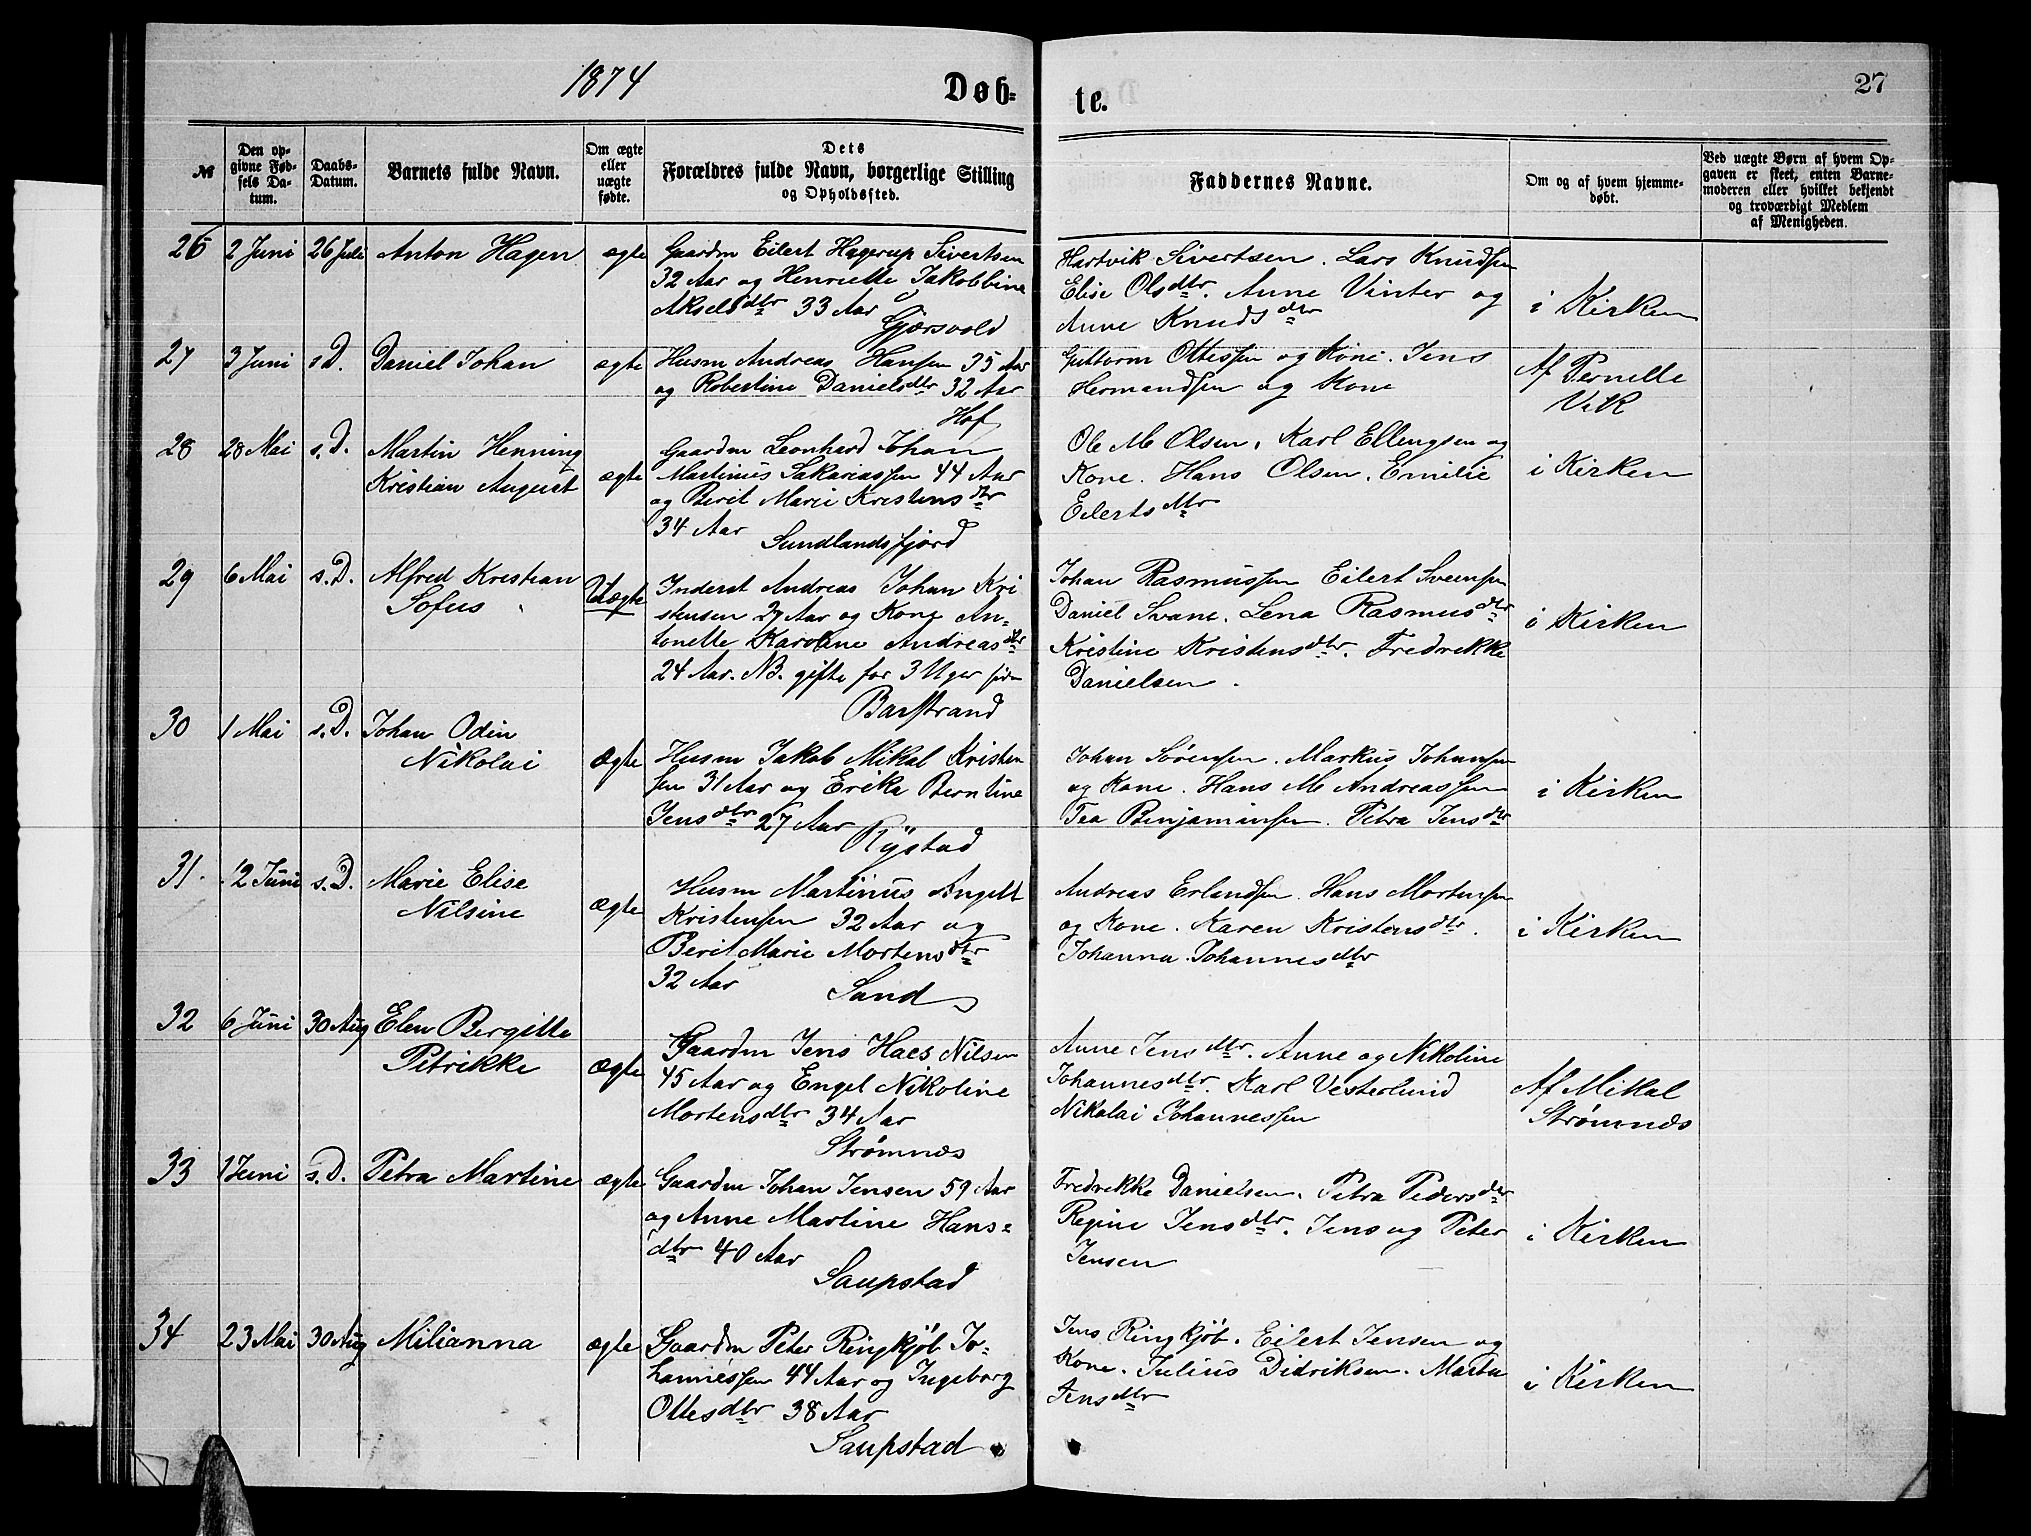 1874
Døb-
te.
27
№
Den op-
givne Fød-
sels Da-
tum.
Daabs-
Datum.
Barnets fulde Navn.
Om ægte
eller
uægte
fødte.
Dets
Forældres fulde Navn, borgerlige Stilling
og Opholdssted.
Faddernes Navne.
Om og af hvem hjemme-
døbt.
Ved uægte Børn af hvem Op-
gaven er skeet, enten Barne-
moderen eller hvilket bekjendt
og troværdigt Medlem
af Menigheden.
26 2 Juni 26 Juli Anton Hagen ægte
Gaardm Eilert Hagerup Sivertsen
32 Aar og Henriette Jakobbine
Akselsdtr 33 Aar
Gjærsvold
Hartvik Sivertsen. Lars Knudsen
Elise Olsdtr. Anne Vinter og
Anne Knudsdtr
i Kirken
27 3 Juni s.D. Daniel Johan ægte
Husm Andreas Hansen 35 Aar
og Robertine Danielsdtr 32 Aar
Hof
Guttorm Ottessen og Kone. Jens
Hermandsen og Kone
Af Pernelle
Vik
28 28 Mai s.D. Martin Henning
Kristian August ægte
Gaardm Leonhard Johan
Martinus Sakariassen 44 Aar
og Berit Marie Kristensdtr
34 Aar
Sundlandsfjord
Ole M Olsen. Karl Ellengsen og
Kone. Hans Olsen. Emilie
Eilertsdtr
i Kirken
29 6 Mai s.D. Alfred Kristian
Sofus Uægte
Inderst Andreas Johan Kri
stensen 29 Aar og Kone An-
tonette Karoline Andreasdtr
24 Aar. NB. gifte for 3 Uger siden
Barstrand
Johan Rasmussen Eilert Svensen
Daniel Svane. Lena Rasmusdtr
Kristine Kristensdtr. Fredrekke
Danielsen.
i Kirken
30 1 Mai s.D. Johan Odin
Nikolai ægte
Husm Jakob Mikal Kristen
sen 31 Aar og Erika Berntine
Jensdtr 27 Aar
Rystad
Johan Sørensen. Markus Johansen
og Kone. Hans M Andreassen
Tea Benjaminsen. Petra Jensdtr
i Kirken
31. 12 Juni s.D. Marie Elise
Nilsine ægte
Husm Martinus Angell
Kristensen 32 Aar og
Berit Marie Mortensdtr
32 Aar
Sand
Andreas Erlandsen. Hans Mortensen
og Kone. Karen Kristensdtr.
Johanna Johannesdtr
i Kirken
32 6 Juni 30 Aug Elen Bergitte
Petrikke ægte
Gaardm Jens Haes Nilsen
45 Aar og Engel Nikoline
Mortensdtr 34 Aar
Strømnes
Anne Jensdtr. Anne og Nikoline
Johannesdtr. Karl Vesterlund
Nikolai Johannessen
Af Mikal
Strømnes
33 1 Juni s.D. Petra Martine ægte
Gaardm Johan Jensen 59 Aar
og Anne Martine Hans-
dtr 40 Aar
Saupstad
Fredrekke Danielsen. Petra Pedersdtr
Regine Jensdtr. Jens og Peter
Jensen
i Kirken
34 23 Mai 30 Aug Milianna ægte
Gaardm Peter Ringkjøb Jo-
hannessen 44 Aar og Ingeborg
Ottesdtr 38 Aar
Saupstad
Jens Ringkjøb. Eilert Jensen og
Kone. Julius Didriksen. Marta
Jensdtr
i Kirken